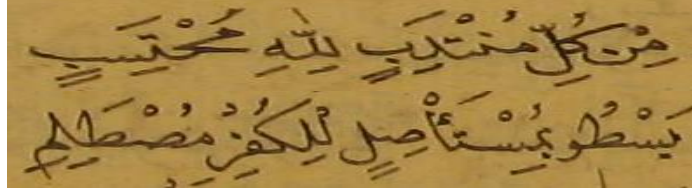 مِنْ كُلِّ مُنْتَدِبٍ لِلّٰهِ مُحْتَسِبٍ
يَسْطُو بِمُسْتَأْصِلٍ لِلْكُفْرِ مُصْطَلِمِ